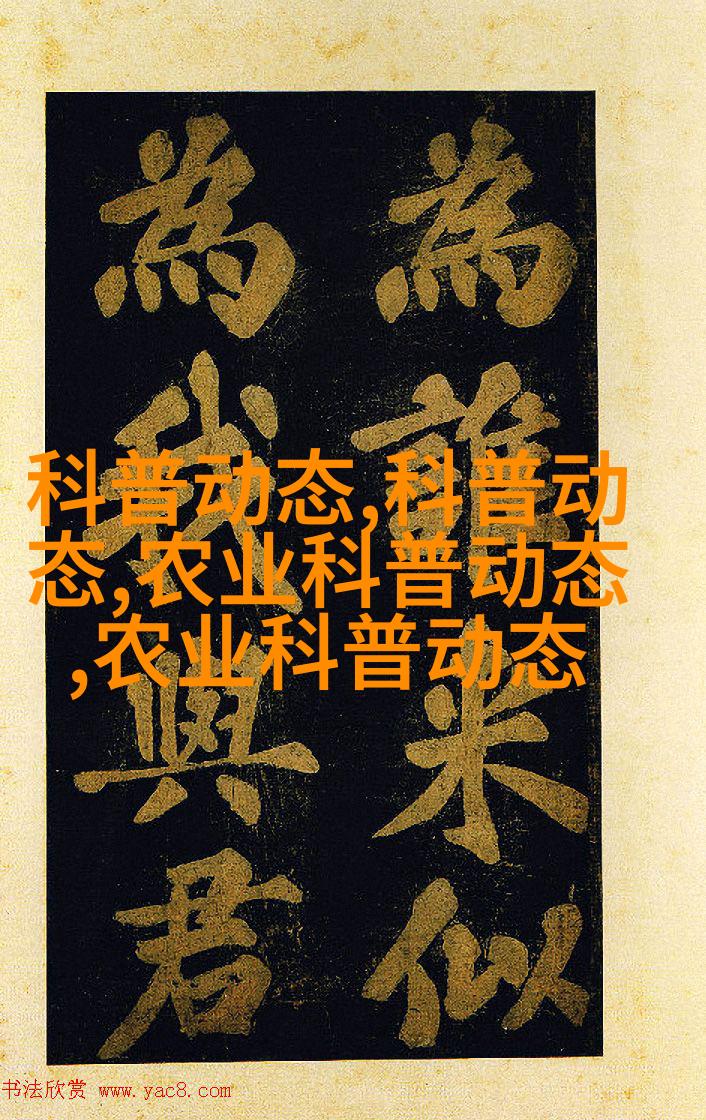 為誰米似
為我興君
科普动态,科普动
态,农业科普动态
,农业科普动态
书法欣赏 www.yac8.com